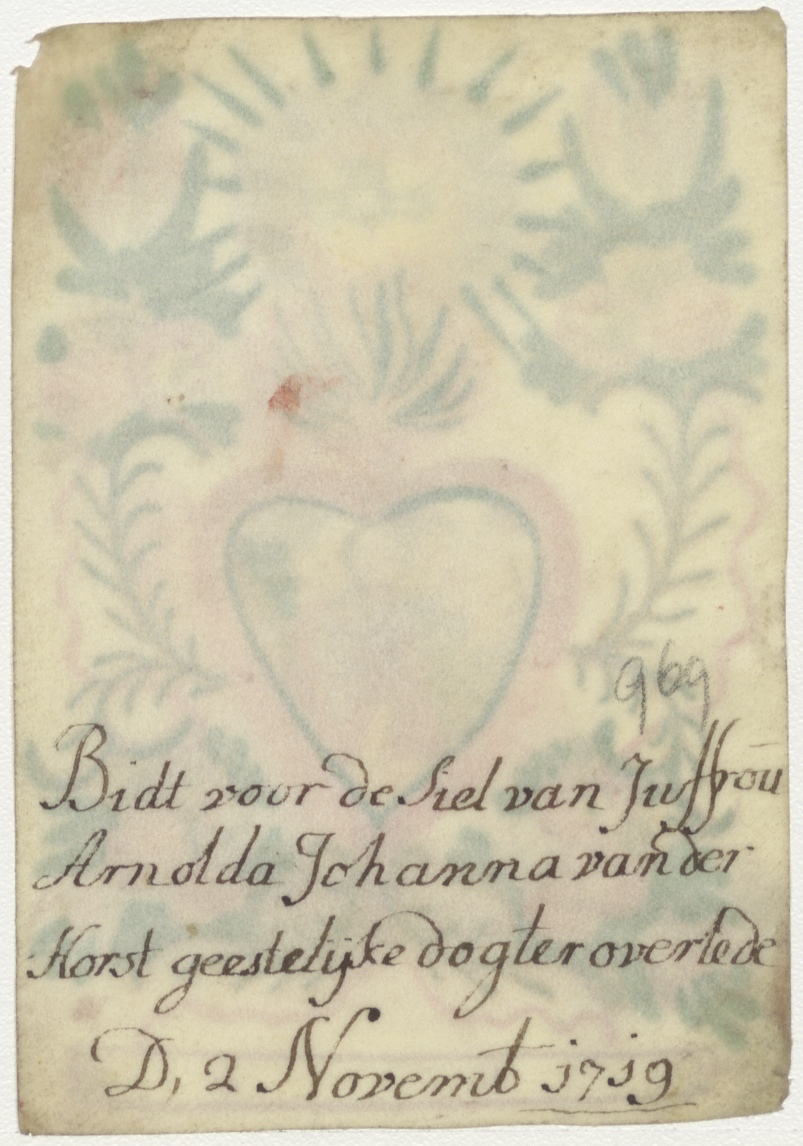 969
Bidt voor de siel van Juffroū
Arnolda Johanna van der
Horst geestelijke dogter overlede
D, 2 Novemb 1719